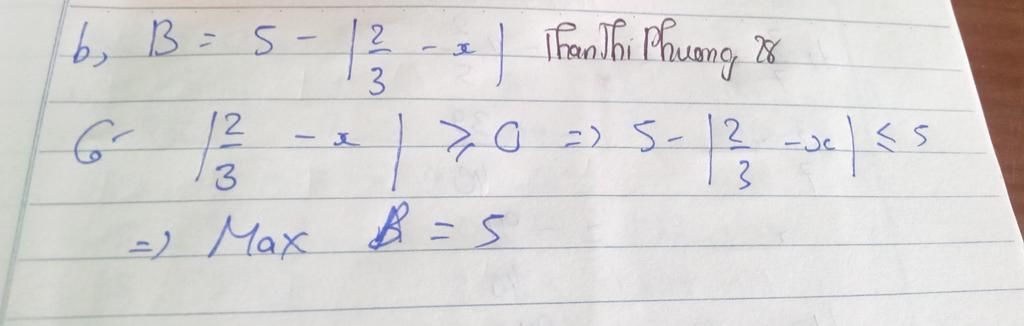 b, B = 5 - |2/3 - x| ThanThiPhuong 28
Có |2/3 - x| ⩾ 0 => 5 - |2/3 - x| ≤ 5
=> Max B = 5